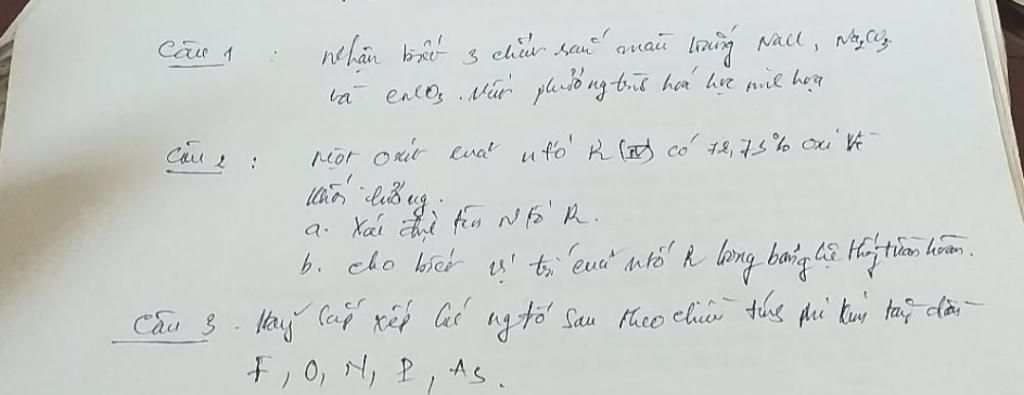 Câu 1 : Nhận biết 3 chất sau màu trắng NaCl, Na2CO3
và CaCO3. Viết phương trình hoá học minh hoạ
Câu 2 : Một oxit của ntố R (IV) có 72,73% oxi về
khối lượng.
a. Xác định tên Ntố R.
b. cho biết vị trí của ntố R trong bảng hệ thống tuần hoàn.
Câu 3. Hãy sắp xếp các ngtố sau theo chiều tính phi kim tăng dần
F, O, N, P, As.